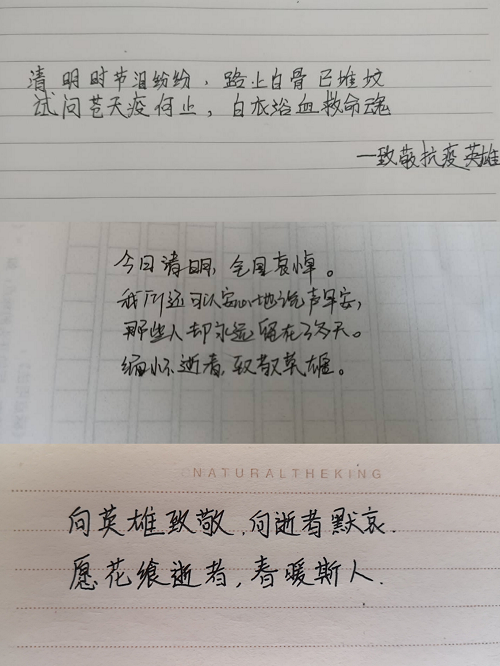 清明时节泪纷纷，路上白骨已堆坟
试问苍天疫何止，白衣浴血救命魂
—致敬抗疫英雄
今日清明，全国哀悼。
我们还可以安心地说声早安，
那些人却永远留在了冬天。
缅怀逝者，致敬英雄。
NATURALTHEKING
向英雄致敬，向逝者默哀.
愿花飨逝者，春暖斯人.